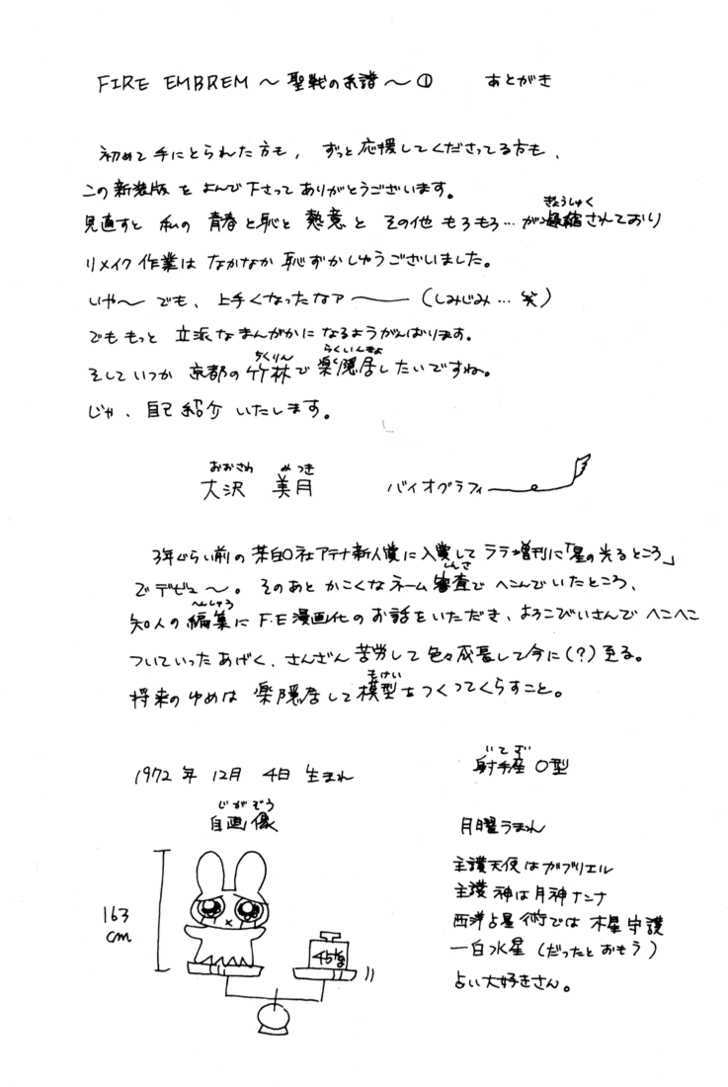 FIRE EMBREM ～聖戦の系譜～① あとがき
初めて手にとられた方も、ずっと応援してくださってる方も、
この新装版をよんで下さってありがとうございます。
見直すと 私の 青春と恥と 熱意と その他 もろもろ…が凝縮されており
ぎょうしゅく
リメイク作業は なかなか 恥ずかしゅうございました。
いや～ でも、上手くなったなァ――（しみじみ…笑）
でももっと 立派なまんがかに なるようがんばります。
そしていつか 京都の竹林で楽隠居したいですね。
ちくりん らくいんきょ
じゃ、自己紹介いたします。
おおさわ みつき
大沢 美月 バイオグラフィ
3年ぐらい前の某白○社アテナ新人賞に入賞して ララ増刊に「星の光るところ」
でデビュ～。そのあと かこくなネーム審査でへこんでいたところ、
しんさ
知人の編集にF.E漫画化のお話をいただき、よろこびいさんでへこへこ
へんしゅう
ついていったあげく、さんざん苦労して色々成長して今に(?)至る。
将来のゆめは 楽隠居して模型をつくってくらすこと。
もけい
1972年 12月 4日 生まれ
いてざ
射手座 O型
じがぞう
自画像
月曜うまれ
主護天使はガブリエル
主護神は月神ナンナ
西洋占星術では 木星守護
一白水星（だったとおもう）
占い大好きさん。
163
cm
45kg